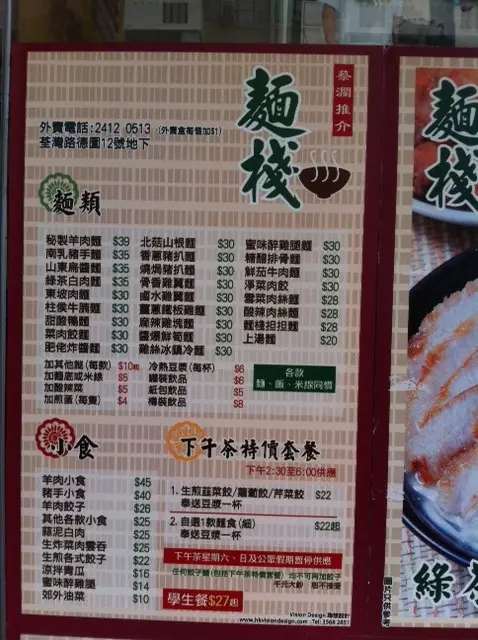 蔡瀾推介
麵棧
外賣電話:2412 0513 (外賣盒每個加$1)
荃灣路德圍12號地下
麵類
秘製羊肉麵 $39
南乳豬手麵 $35
山東扁醬麵 $35
綠茶白肉麵 $35
東坡肉麵 $30
柱侯牛腩麵 $30
甜酸鴨麵 $30
菜肉餃麵 $30
肥佬炸醬麵 $30
北菇山根麵 $30
香蔥豬扒麵 $30
燒焗豬扒麵 $30
骨香雞翼麵 $30
鹵水雞翼麵 $30
薑蔥鐵板雞麵 $30
麻辣雞塊麵 $30
醬爆鮮菊麵 $30
雞絲冰鎮冷麵 $30
蜜味醉雞腿麵 $30
糖醋排骨麵 $30
鮮茄牛肉麵 $30
淨菜肉餃 $30
雪菜肉絲麵 $28
酸辣肉絲麵 $28
麵棧担担麵 $28
上湯麵 $20
加其他餸(每款) $10
加麵底或米線 $5
加酸辣菜 $5
加煎蛋(每隻) $4
冷熱豆漿(每杯) $6
罐裝飲品 $6
紙包飲品 $5
樽裝飲品 $8
各款
麵、飯、米線同價
小食
羊肉小食 $45
豬手小食 $40
羊肉餃子 $26
其他各款小食 $25
蒜泥白肉 $25
生炸菜肉雲吞 $25
生煎各式餃子 $22
涼拌青瓜 $16
蜜味醉雞腿 $14
郊外油菜 $10
下午茶特價套餐
下午2:30至6:00供應
1. 生煎韮菜餃/蘿蔔餃/芹菜餃 $22
奉送豆漿一杯
2. 自選1款麵食(細) $22起
奉送豆漿一杯
下午茶星期六、日及公眾假期暫停供應
任何餃子類(包括下午茶特價套餐) 均不可再加餃子
千元大鈔 恕不接受
學生餐$27起
Vision Design 聯想設計
http://www.hkvisiondesign.com Tel: 3568 2851
麵棧
綠茶
圖片只供參考